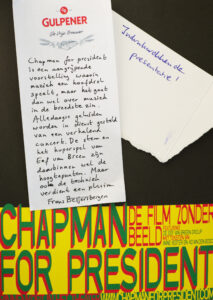 GULPENER
De Vrije Brouwer
Chapman for president
is een aangrijpende
voorstelling, waarin
muziek een hoofdrol
speelt, maar het gaat
dan wel over muziek
in de breedste zin.
Alledaagse geluiden
worden in dienst gesteld
van een verhalend
concert. De stem en
het hoorspel van
Eef van Breen zijn
daarbinnen wel de
hoogtepunten. Maar
ook de techniek
verdient een pluim
Frans
Indrukwekkende
CHAPMAN DE FILM ZONDER
BEELD
FOR PRESIDENT
WWW.CHAPMANFORPRESIDENT.COM